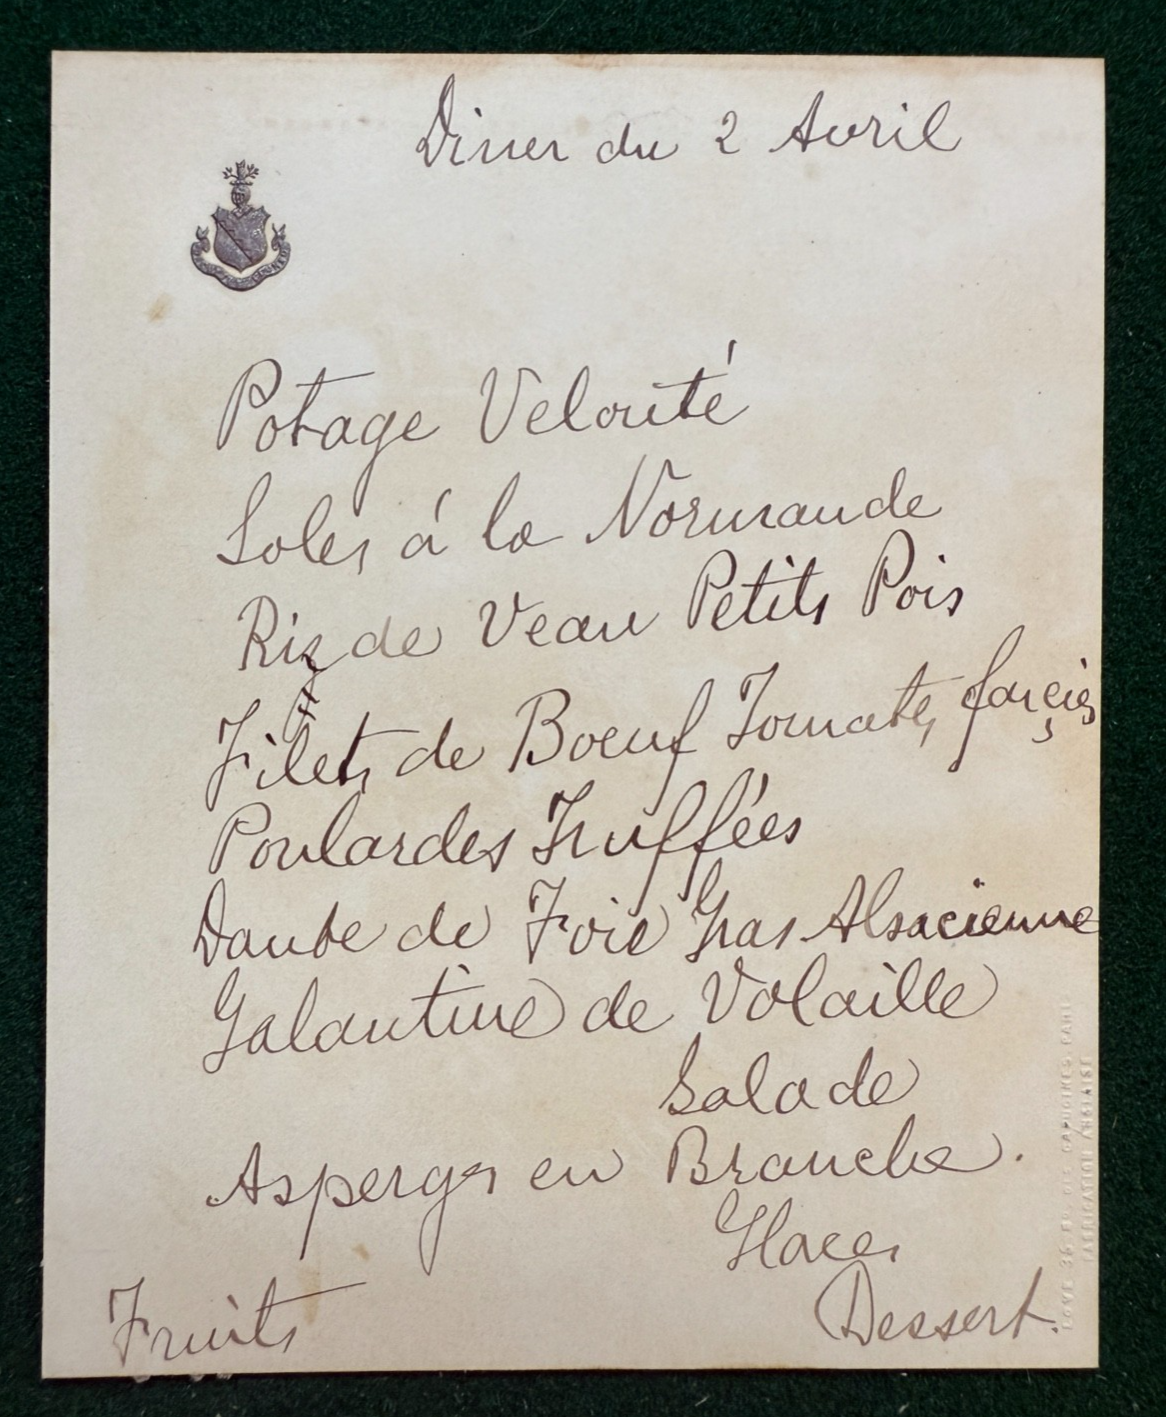 Diner du 2 Avril
Potage Velouté
Soles á la Normande
Riz de Veau Petits Pois
Filets de Boeuf Tomates farçies
Poulardes Truffées
Daube de Foie Gras Alsacienne
Galantine de Volaille
Salade
Asperges en Branche.
Glaces
Fruits Dessert.
CAPUCINES. PARI
FABRICATION ANGLAISE